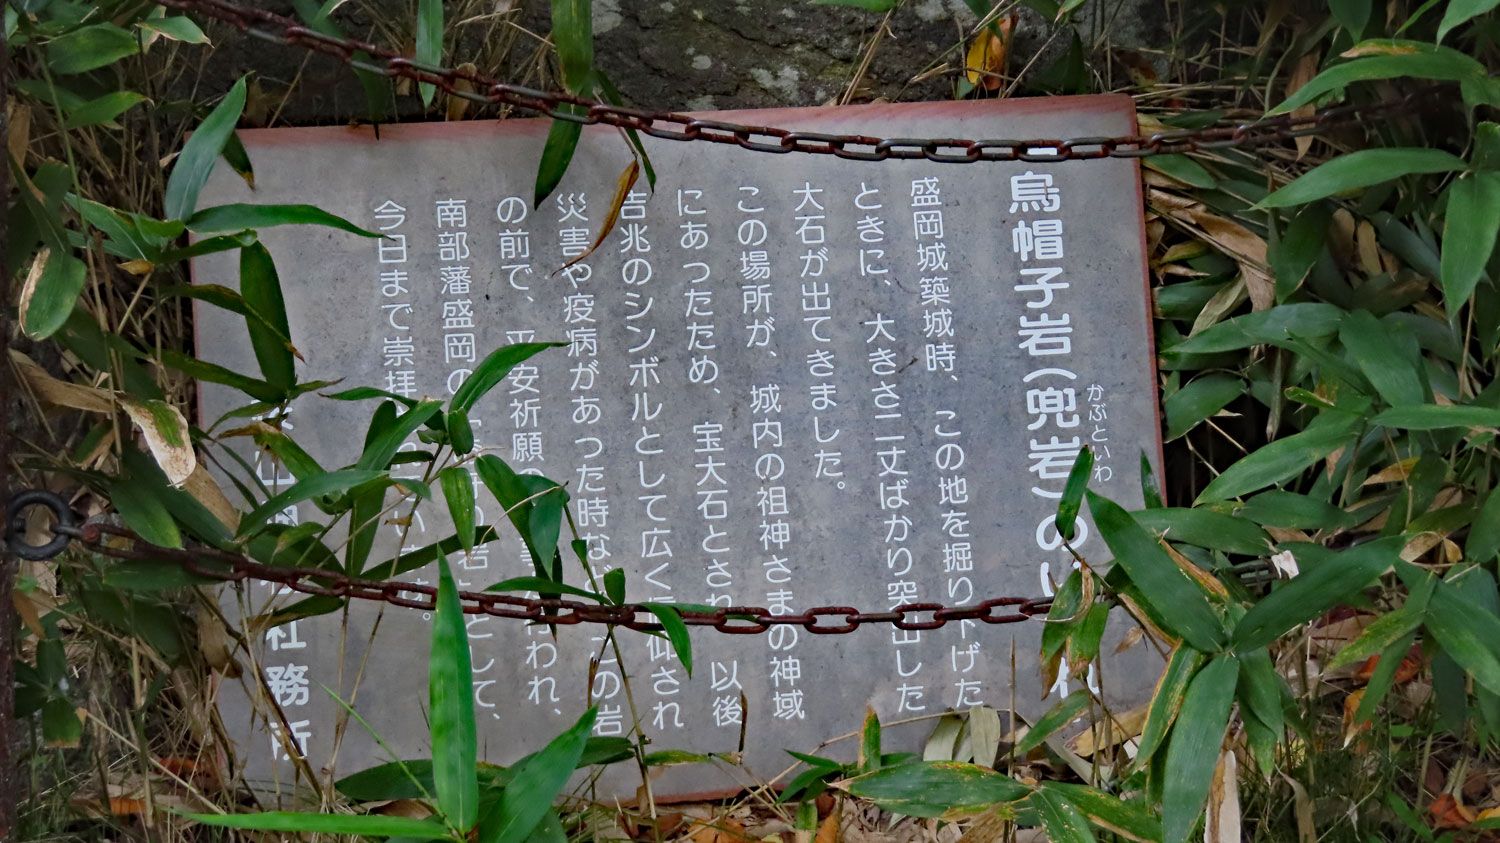 烏帽子岩(兜岩)のいわれ
かぶといわ
盛岡城築城時、この地を掘り下げた
ときに、大きさ二丈ばかり突出した
大石が出てきました。
この場所が、城内の祖神さまの神域
にあったため、宝大石とされ、以後
吉兆のシンボルとして広く信仰され
災害や疫病があった時など、この岩
の前で、平安祈願の 行われ、
南部藩盛岡の 岩」として、
今日まで崇拝
社務所